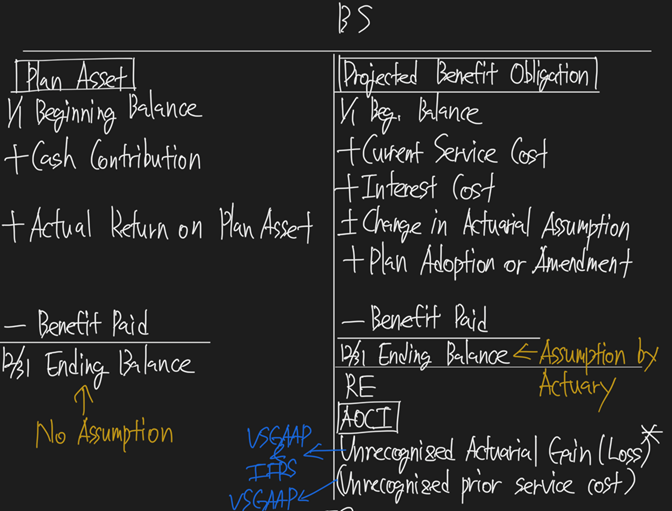 BS
Plan Asset
1/1 Beginning Balance
+ Cash Contribution
+ Actual Return on Plan Asset
— Benefit Paid
12/31 Ending Balance
No Assumption
Projected Benefit Obligation
1/1 Beg. Balance
+ Current Service Cost
+ Interest Cost
± Change in Actuarial Assumption
+ Plan Adoption or Amendment
— Benefit Paid
12/31 Ending Balance ← Assumption by
Actuary
RE
AOCI
USGAAP
&
IFRS
USGAAP
Unrecognized Actuarial Gain (Loss) *
(Unrecognized prior service cost)